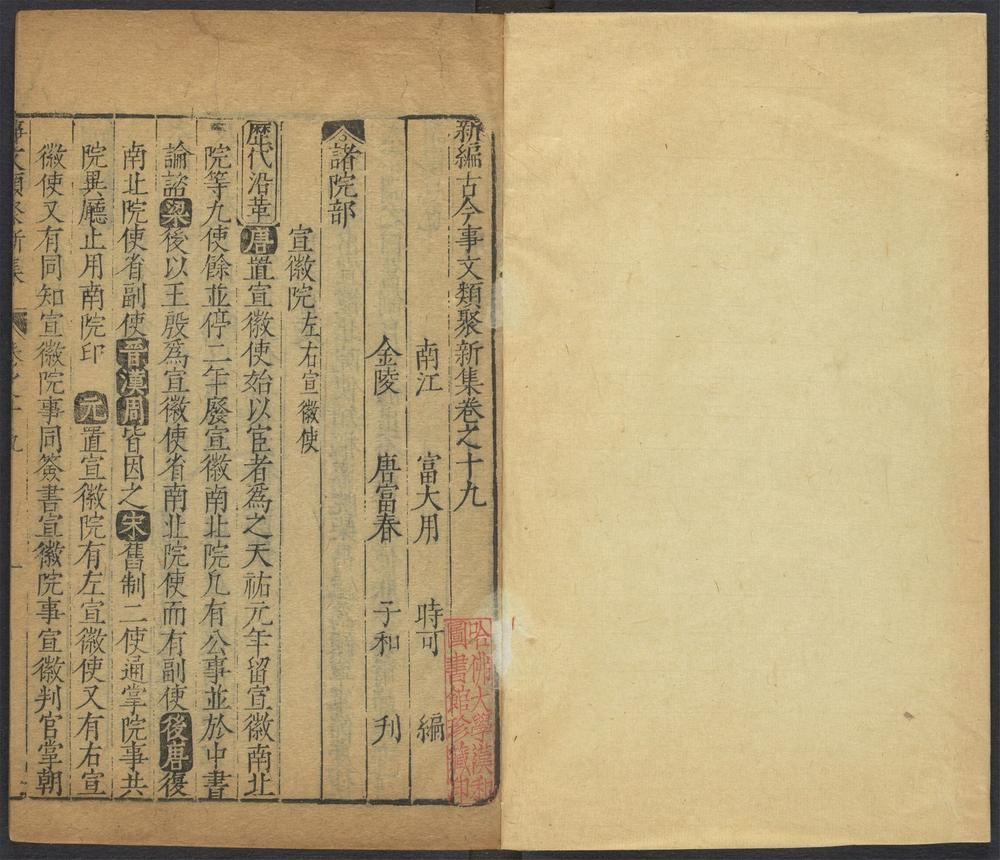 新編古今事文類聚新集卷之十九
南江 富大用 時可 編
金陵 唐富春 子和 刋
諸院部
宣徽院左右宣徽使
歷代沿革唐置宣徽使始以宦者爲之天祐元年留宣徽南北
院等九使餘並停二年廢宣徽南北院凡有公事並於中書
論諮梁後以王殷爲宣徽使省南北院使而有副使後唐復
南北院使省副使晉漢周皆因之宋舊制二使通掌院事共
院異廳止用南院印 元置宣徽院有左宣徽使又有右宣
徽使又有同知宣徽院事同簽書宣徽院事宣徽判官掌朝
哈佛大學漢和
圖書館珍藏印